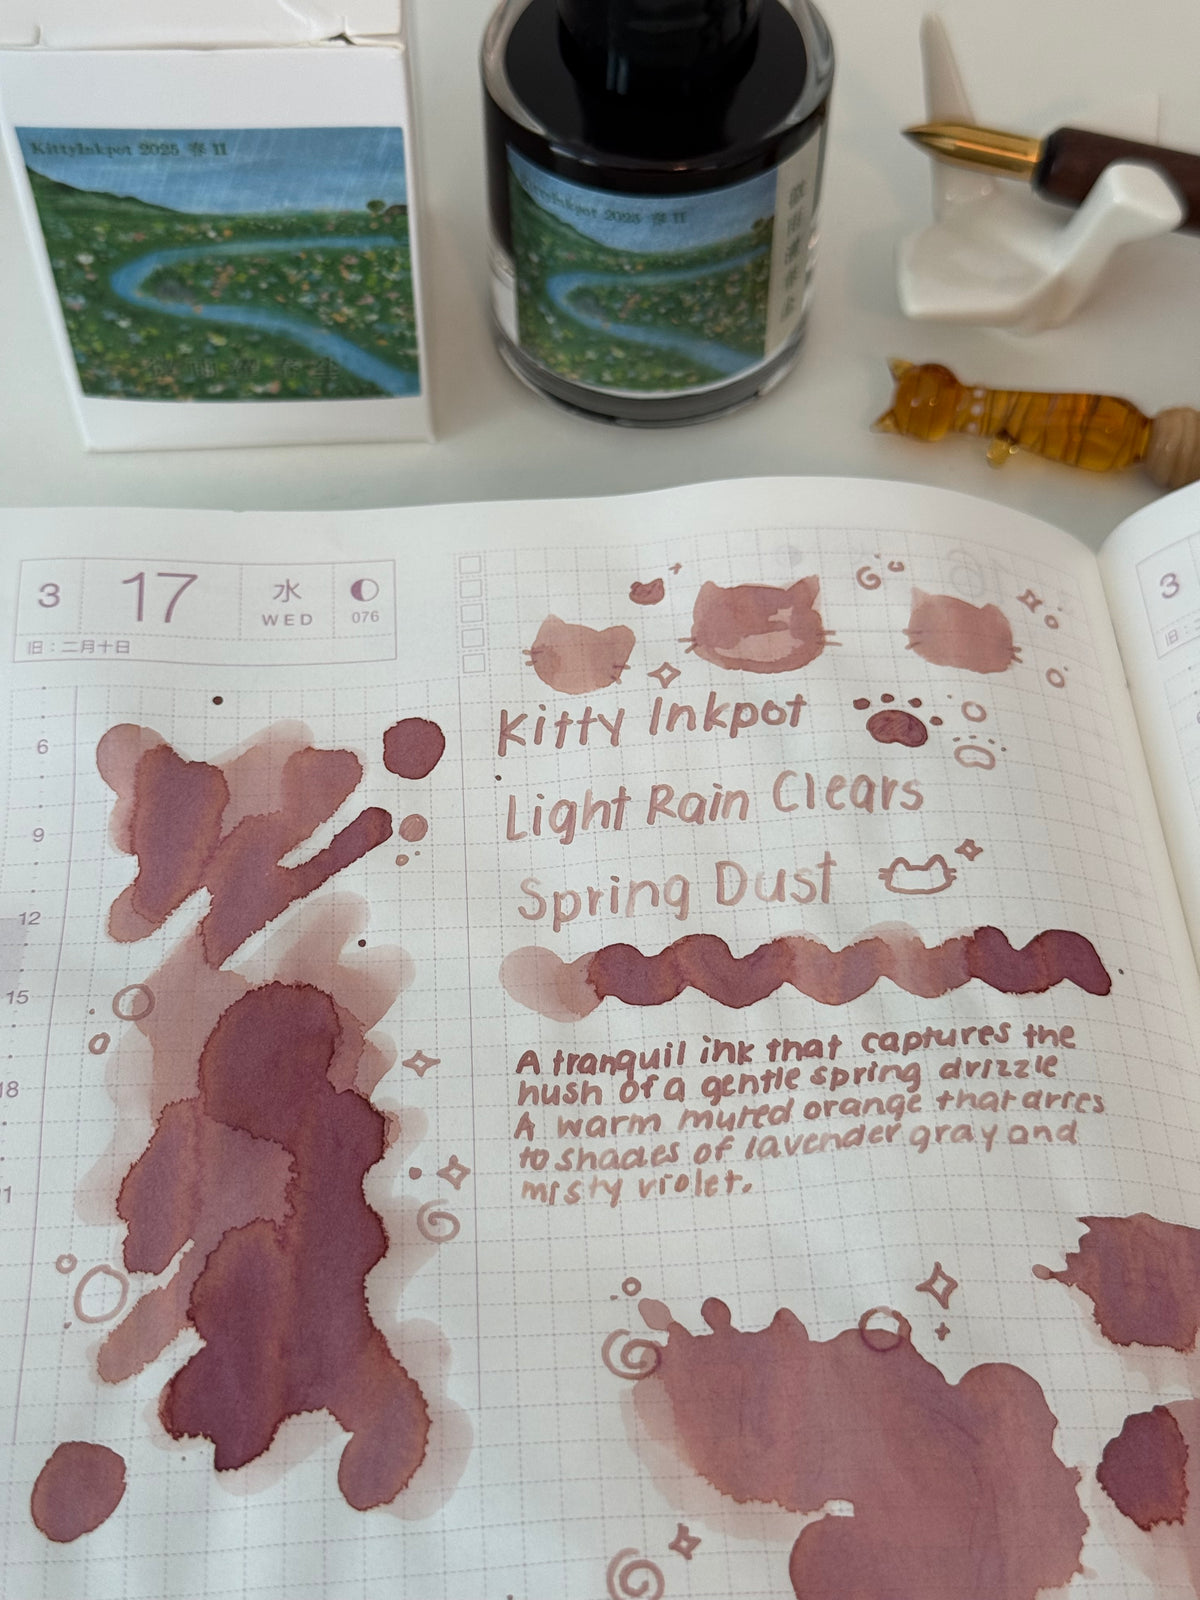 KittyInkpot 2025 春 II
KittyInkpot 2025 春 II
3
17
水
WED
076
旧：二月十日
6
9
12
15
18
Kitty Inkpot
Light Rain Clears
Spring Dust
A tranquil ink that captures the
hush of a gentle spring drizzle
A warm muted orange that dries
to shades of lavender gray and
misty violet.
16
3
旧：